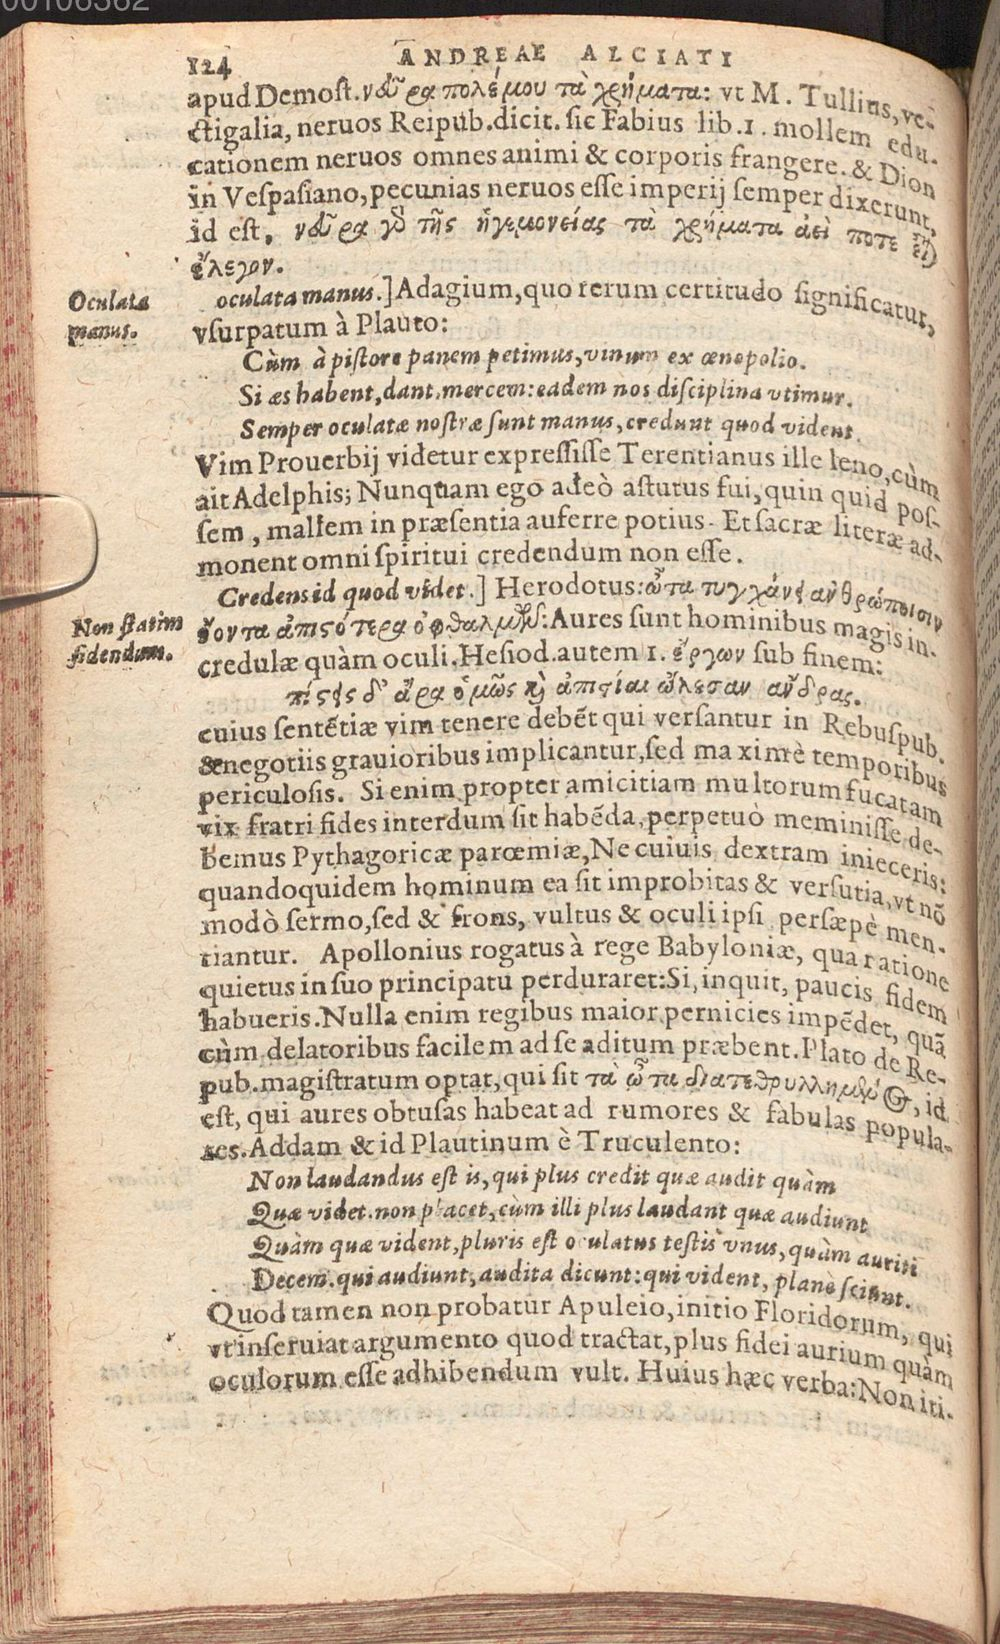 00106362
124 ANDREAE ALCIATI
apud Demost. νεῦρα πολέμου τὰ χρήματα: vt M. Tullius, ve-
ctigalia, neruos Reipub. dicit. sic Fabius lib. 1. mollem edu-
cationem neruos omnes animi & corporis frangere. & Dion
in Vespasiano, pecunias neruos esse imperij semper dixerunt,
id est, νεῦρα γὸ τῆς ἡγεμονείας τὰ χρήματα ἀεὶ ποτε
ἔλεγον.
Oculata
manus.
oculata manus.] Adagium, quo rerum certitudo significatur,
vsurpatum à Plauto:
Cùm à pistore panem petimus, vinum ex œnopolio.
Si æs habent, dant mercem: eadem nos disciplina vtimur.
Semper oculatæ nostræ sunt manus, credunt quod vident.
Vim Prouerbij videtur expressisse Terentianus ille leno, cùm
ait Adelphis; Nunquam ego adeò astutus fui, quin quid pos-
sem, mallem in præsentia auferre potius. Et sacræ literæ ad-
monent omni spiritui credendum non esse.
Credens id quod videt.] Herodotus: ὦτα τυγχάνει ἀνθρώποισιν
Non statim
fidendum.
ἔοντα ἀπιστότερα ὀφθαλμῶν: Aures sunt hominibus magis in-
credulæ quàm oculi. Hesiod. autem 1. ἔργων sub finem:
πίστεις δ' ἄρα ὁμῶς καὶ ἀπιστίαι ὤλεσαν ἄνδρας.
cuius sentẽtiæ vim tenere debẽt qui versantur in Rebuspub.
& negotiis grauioribus implicantur, sed maximè temporibus
periculosis. Si enim propter amicitiam multorum fucatam
vix fratri fides interdum sit habẽda, perpetuò meminisse de-
bemus Pythagoricæ parœmiæ, Ne cuiuis dextram inieceris:
quandoquidem hominum ea sit improbitas & versutia, vt nõ
modò sermo, sed & frons, vultus & oculi ipsi persæpè men-
tiantur. Apollonius rogatus à rege Babyloniæ, qua ratione
quietus in suo principatu perduraret: Si, inquit, paucis fidem
habueris. Nulla enim regibus maior pernicies impẽdet, quã
cùm delatoribus facilem ad se aditum præbent. Plato de Re-
pub. magistratum optat, qui sit τὰ ὦτα διατεθρυλλημένος, id
est, qui aures obtusas habeat ad rumores & fabulas popula-
res. Addam & id Plautinum è Truculento:
Non laudandus est is, qui plus credit quæ audit quàm
Quæ videt. non placet, cùm illi plus laudant quæ audiunt
Quàm quæ vident, pluris est oculatus testis vnus, quàm auriti
Decem. qui audiunt, audita dicunt: qui vident, planè sciunt.
Quod tamen non probatur Apuleio, initio Floridorum, qui
vt inseruiat argumento quod tractat, plus fidei aurium quàm
oculorum esse adhibendum vult. Huius hæc verba: Non iti-